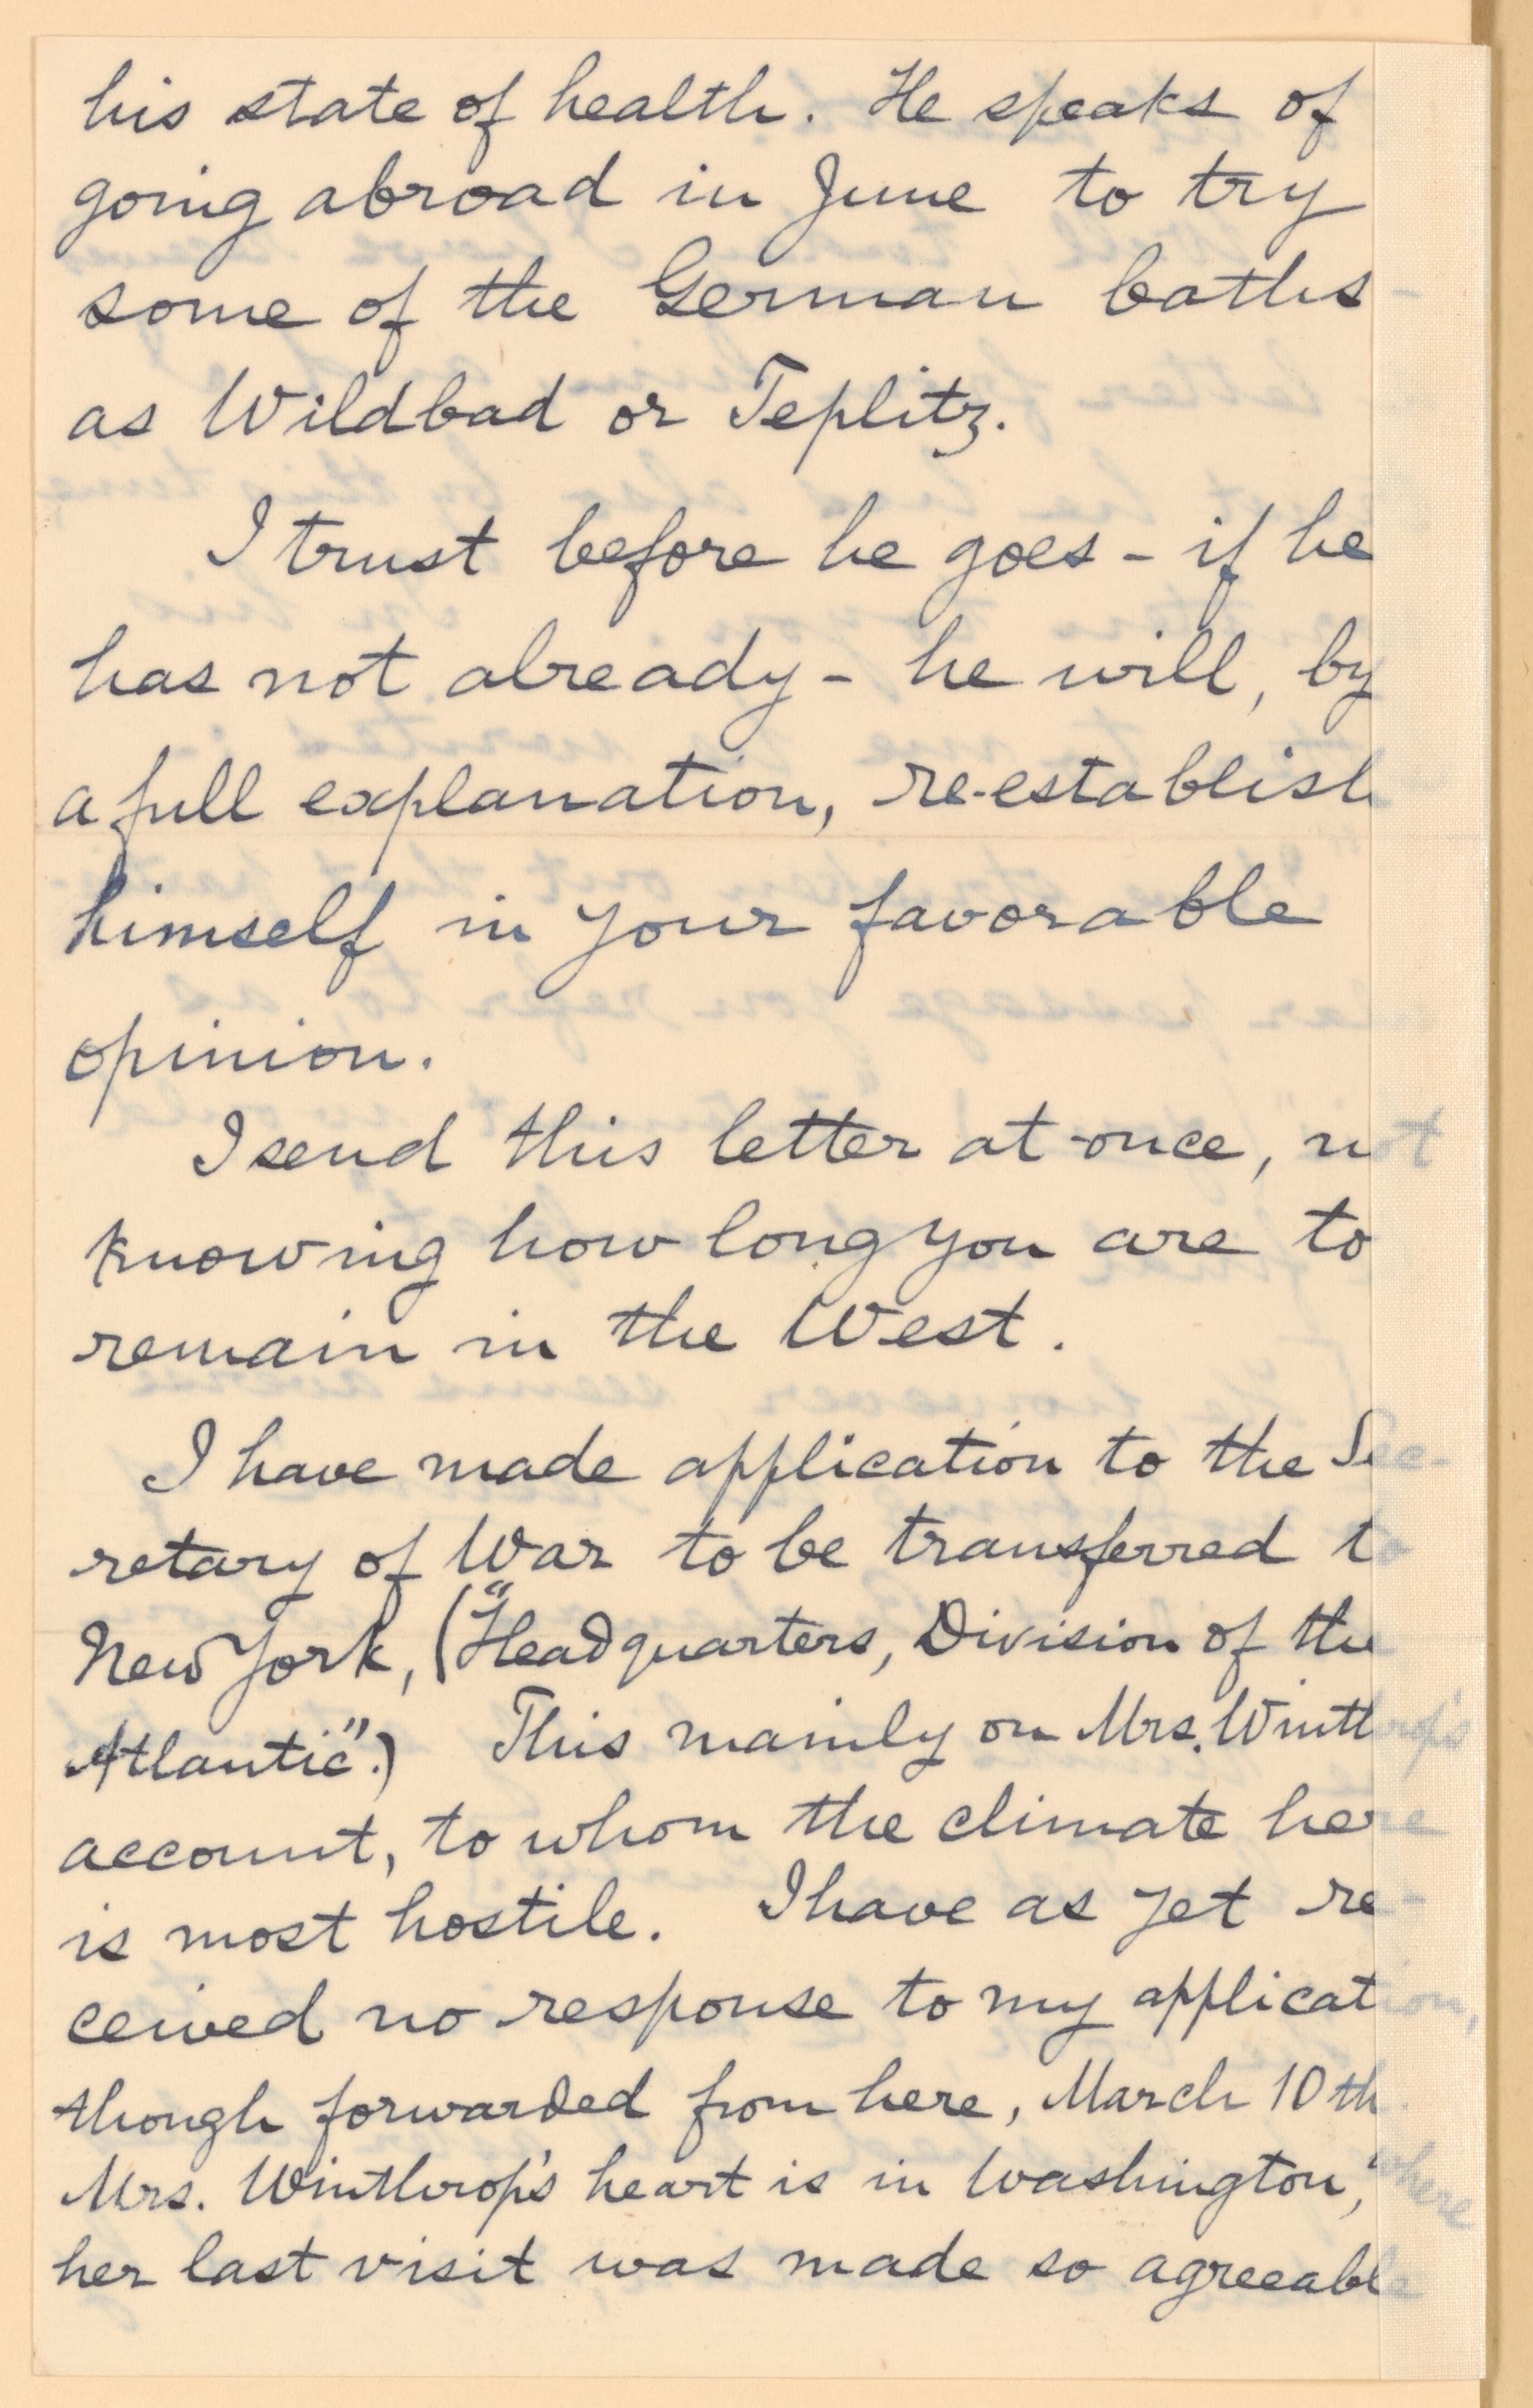 his state of health. He speaks of
going abroad in June to try
some of the German baths-
as Wildbad or Teplitz.
I trust before he goes - if he
has not already - he will, by
a full explanation, re-establish
himself in your favorable
opinion.
I send this letter at once, not
knowing how long you are to
remain in the West.
I have made application to the Sec-
retary of War to be transferred to
New York, ("Headquarters, Division of the
Atlantic".) This mainly on Mrs. Winthrop's
account, to whom the climate here
is most hostile. I have as yet re-
ceived no response to my application,
though forwarded from here, March 10th.
Mrs. Winthrop's heart is in Washington, where
her last visit was made so agreeable